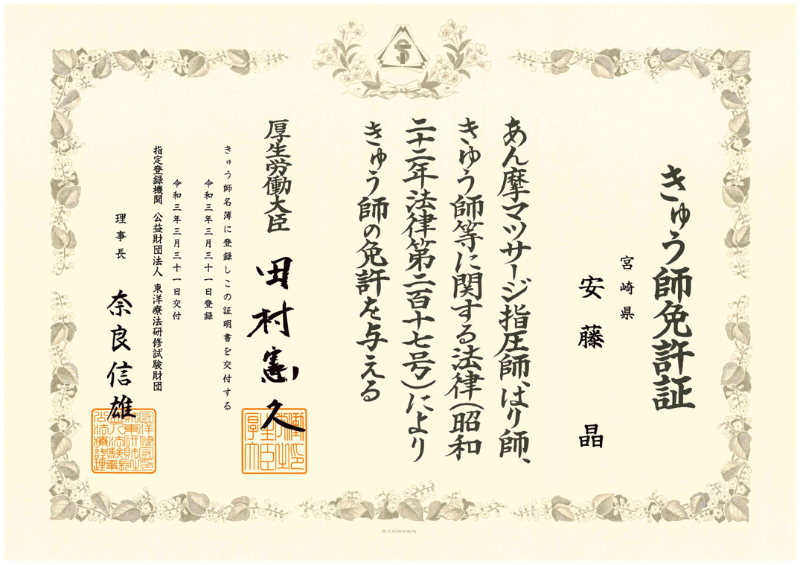 きゅう師免許証
宮崎県
安藤 晶
あん摩マッサージ指圧師、はり師、
きゆう師等に関する法律(昭和
二十二年法律第二百十七号)により
きゅう師の免許を与える
厚生労働大臣 田村憲久
きゅう師名簿に登録しこの証明書を交付する
令和三年三月三十一日登録
令和三年三月三十一日交付
指定登録機関 公益財団法人 東洋療法研修試験財団
理事長 奈良信雄